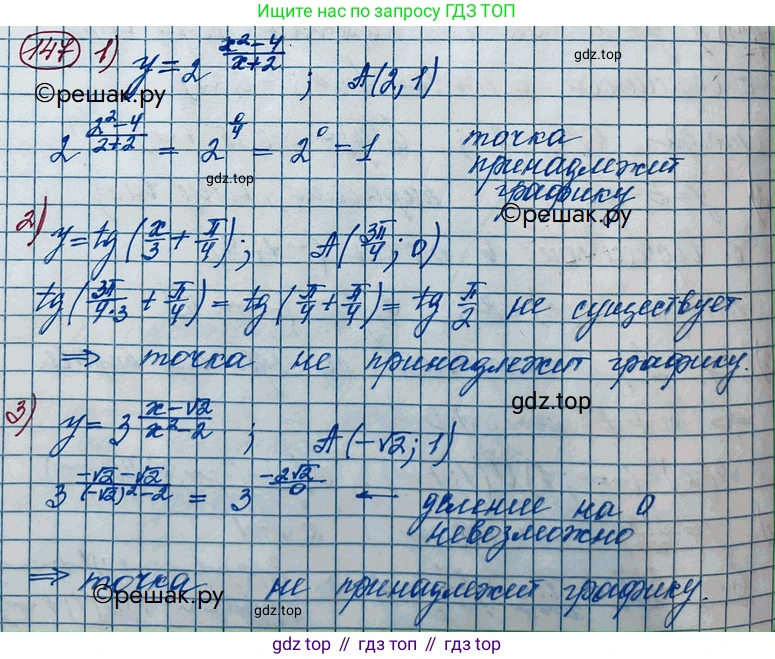 Ищите нас по запросу ГДЗ ТОП
147 1) y = 2^((x²-4)/(x+2)) ; A(2, 1)
©решак.ру
gdz.top
2^((2²-4)/(2+2)) = 2^(0/4) = 2^0 = 1 точка
принадлежит
графику
gdz.top
©решак.ру
2) y = tg(x/3 + π/4); A(3π/4; 0)
tg(3π/(4·3) + π/4) = tg(π/4 + π/4) = tg π/2 не существует
⇒ точка не принадлежит графику.
gdz.top
3) y = 3^((x-√2)/(x²-2)) ; A(-√2; 1)
3^((-√2-√2)/((-√2)²-2)) = 3^(-2√2/0) ← деление на 0
невозможно
⇒ точка не принадлежит графику.
©решак.ру
gdz.top
gdz.top // гдз топ // gdz top